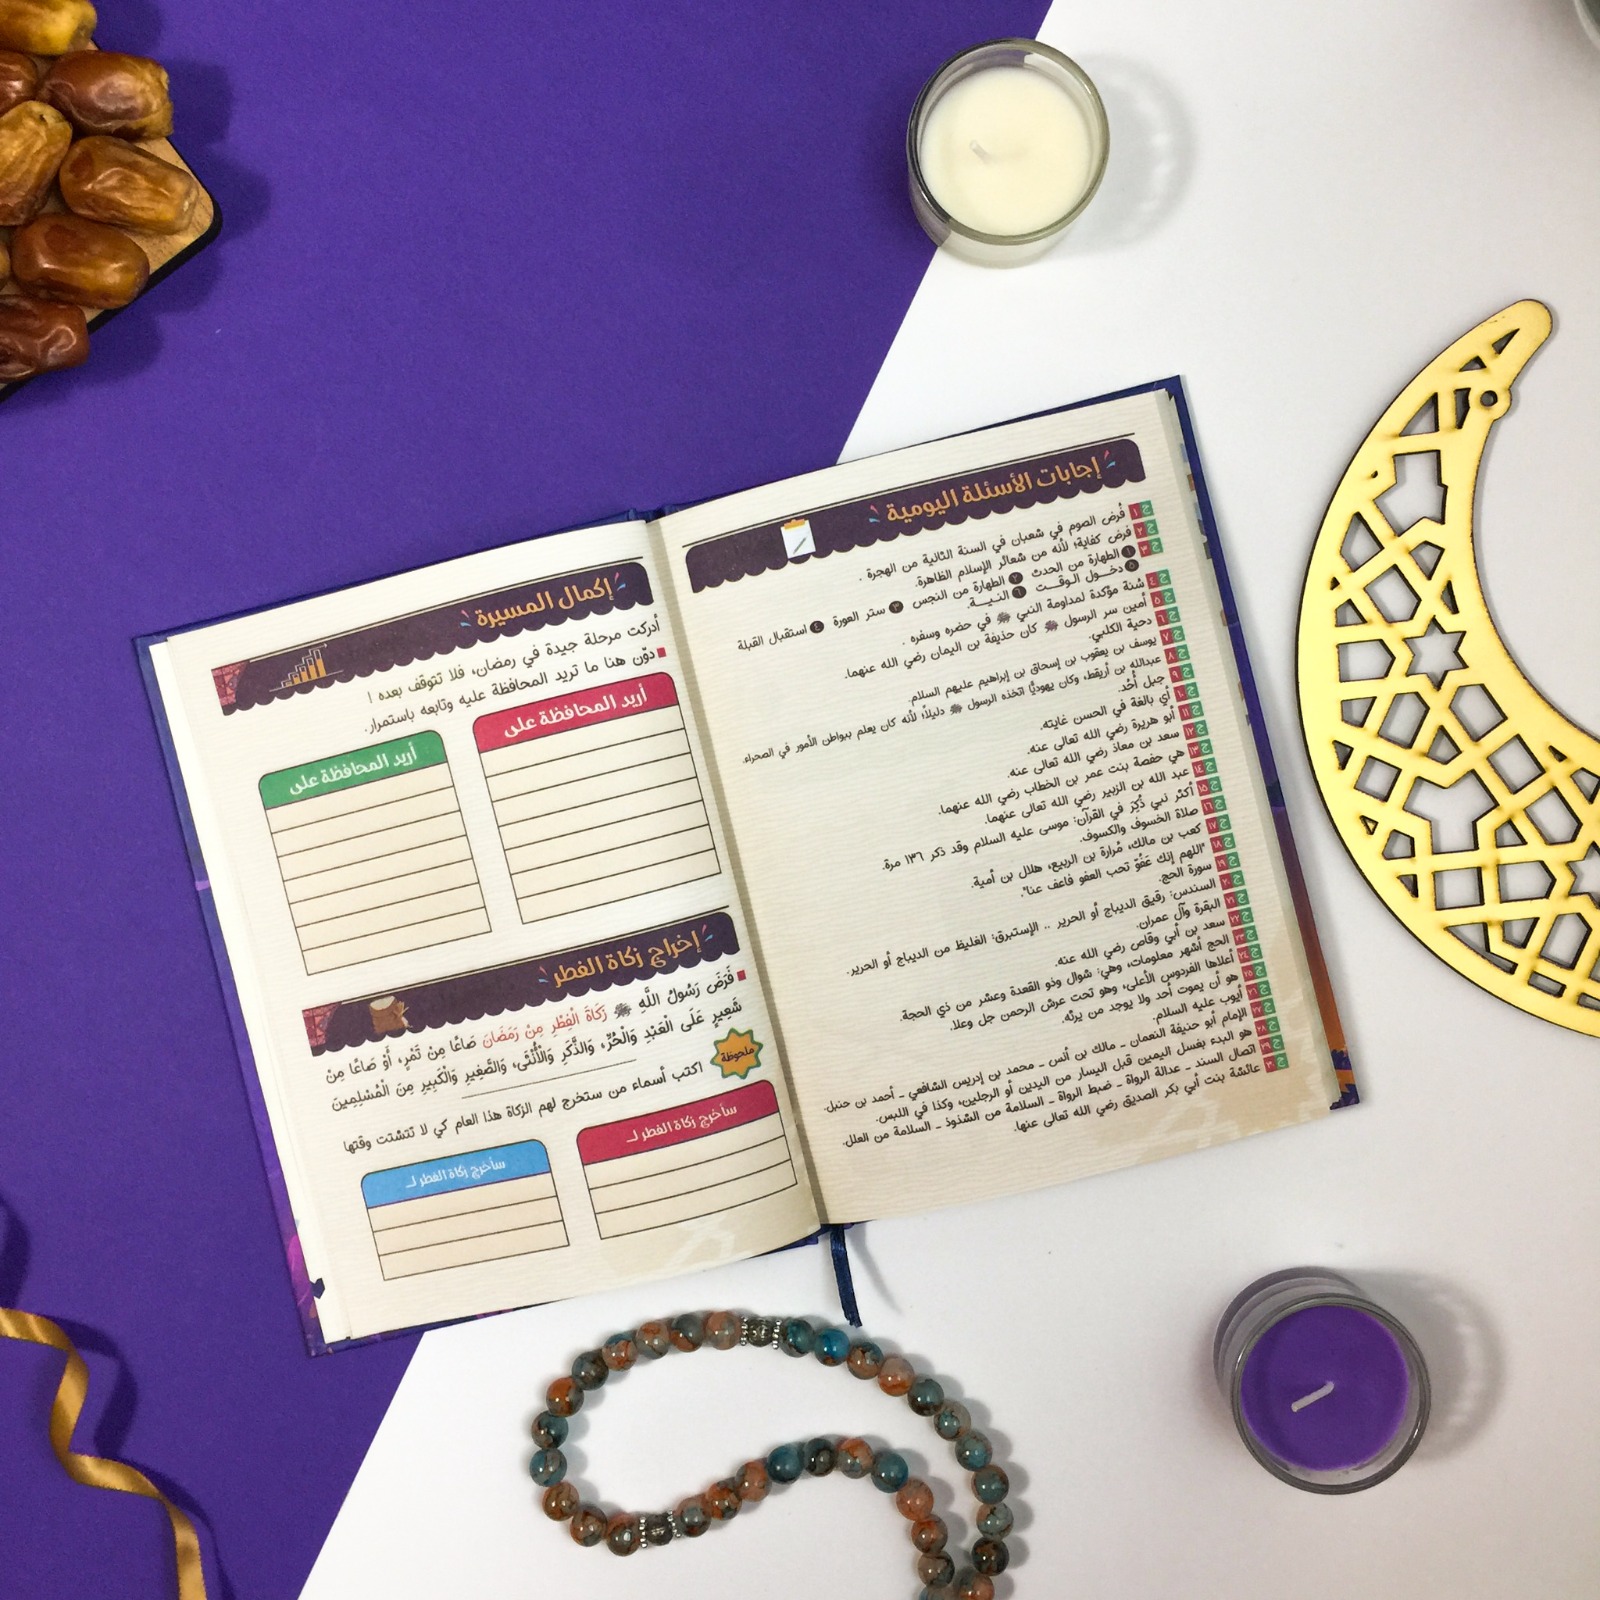 إجابات الأسئلة اليومية
ج ١ فُرض الصوم في شعبان في السنة الثانية من الهجرة .
ج ٢ فرض كفاية؛ لأنه من شعائر الإسلام الظاهرة.
ج ٣ ١ الطهارة من الحدث ٢ الطهارة من النجس ٣ ستر العورة ٤ استقبال القبلة
٥ دخول الوقت ٦ النية.
ج ٤ سُنة مؤكدة لمداومة النبي ﷺ في حضره وسفره .
ج ٥ أمين سر الرسول ﷺ كان حذيفة بن اليمان رضي الله عنهما.
ج ٦ دحية الكلبي.
ج ٧ يوسف بن يعقوب بن إسحاق بن إبراهيم عليهم السلام.
ج ٨ عبدالله بن أريقط، وكان يهوديًّا اتخذه الرسول ﷺ دليلاً؛ لأنه كان يعلم ببواطن الأمور في الصحراء.
ج ٩ جبل أُحُد.
ج ١٠ أي بالغة في الحسن غايته.
ج ١١ أبو هريرة رضي الله تعالى عنه.
ج ١٢ سعد بن معاذ رضي الله تعالى عنه.
ج ١٣ هي حفصة بنت عمر بن الخطاب رضي الله عنهما.
ج ١٤ عبد الله بن الزبير رضي الله تعالى عنهما.
ج ١٥ أكثر نبي ذُكِرَ في القرآن: موسى عليه السلام وقد ذكر ١٣٦ مرة.
ج ١٦ صلاة الخسوف والكسوف.
ج ١٧ كعب بن مالك، مُرارة بن الربيع، هلال بن أمية.
ج ١٨ "اللهم إنك عَفُوّ تحب العفو فاعف عنا".
ج ١٩ سورة الحج.
ج ٢٠ السندس: رقيق الديباج أو الحرير .. الإستبرق: الغليظ من الديباج أو الحرير.
ج ٢١ البقرة وآل عمران.
ج ٢٢ سعد بن أبي وقاص رضي الله عنه.
ج ٢٣ الحج أشهر معلومات، وهي: شوال وذو القعدة وعشر من ذي الحجة.
ج ٢٤ أعلاها الفردوس الأعلى، وهو تحت عرش الرحمن جل وعلا.
ج ٢٥ هو أن يموت أحد ولا يوجد من يرثه.
ج ٢٦ أيوب عليه السلام.
ج ٢٧ الإمام أبو حنيفة النعمان ـ مالك بن أنس ـ محمد بن إدريس الشافعي ـ أحمد بن حنبل.
ج ٢٨ هو البدء بغسل اليمين قبل اليسار من اليدين أو الرجلين، وكذا في اللبس.
ج ٢٩ اتصال السند ـ عدالة الرواة ـ ضبط الرواة ـ السلامة من الشذوذ ـ السلامة من العلل.
ج ٣٠ عائشة بنت أبي بكر الصديق رضي الله تعالى عنها.
إكمال المسيرة
أدركت مرحلة جيدة في رمضان، فلا تتوقف بعده !
دوّن هنا ما تريد المحافظة عليه وتابعه باستمرار.
أريد المحافظة على
أريد المحافظة على
إخراج زكاة الفطر
فَرَضَ رَسُولُ اللَّهِ ﷺ زَكَاةَ الْفِطْرِ مِنْ رَمَضَانَ صَاعًا مِنْ تَمْرٍ، أَوْ صَاعًا مِنْ
شَعِيرٍ عَلَى الْعَبْدِ وَالْحُرِّ، وَالذَّكَرِ وَالْأُنْثَى، وَالصَّغِيرِ وَالْكَبِيرِ مِنَ الْمُسْلِمِينَ
ملحوظة
اكتب أسماء من ستخرج لهم الزكاة هذا العام كي لا تتشتت وقتها
سأخرج زكاة الفطر لـ
سأخرج زكاة الفطر لـ